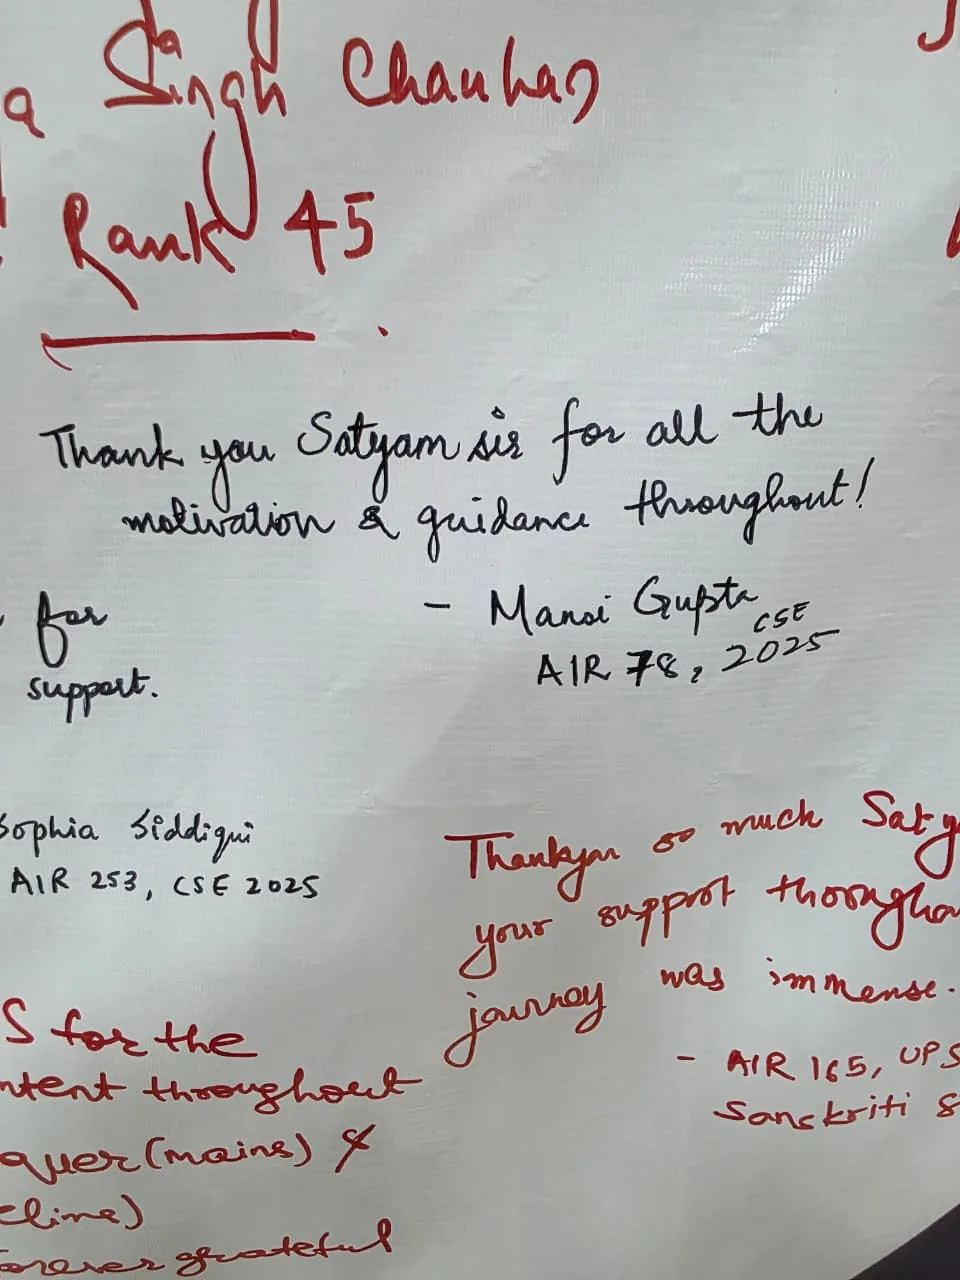 Singh Chauhan
Rank 45
Thank you Satyam sir for all the
motivation & guidance throughout!
- Mansi Gupta
CSE
AIR 78, 2025
for
support.
Sophia Siddiqui
AIR 253, CSE 2025
Thankyou so much Saty
your support throughou
journey was immense.
- AIR 165, UPS
Sanskriti S
S for the
ntent throughout
quer (mains) &
elims)
forever grateful